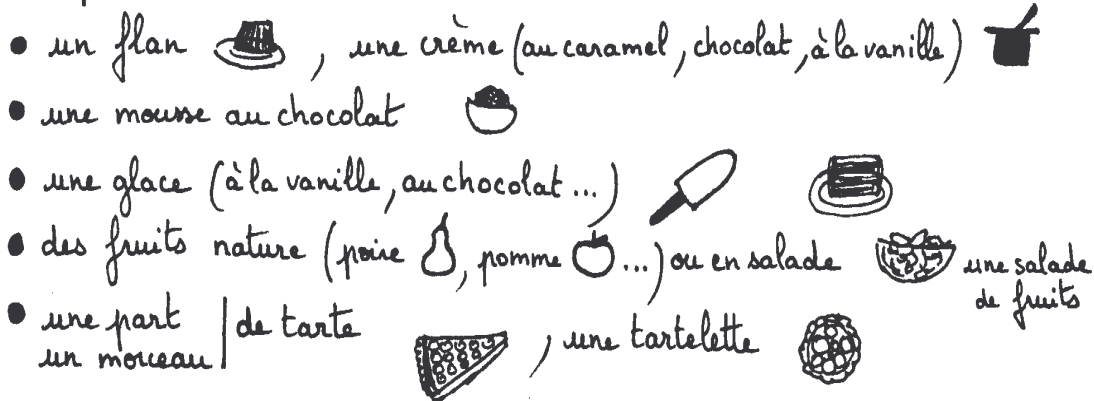 • un flan , une crème (au caramel, chocolat, à la vanille)
• une mousse au chocolat
• une glace (à la vanille, au chocolat ...)
• des fruits nature (poire , pomme ...) ou en salade
une salade de fruits
• une part
un morceau | de tarte , une tartelette